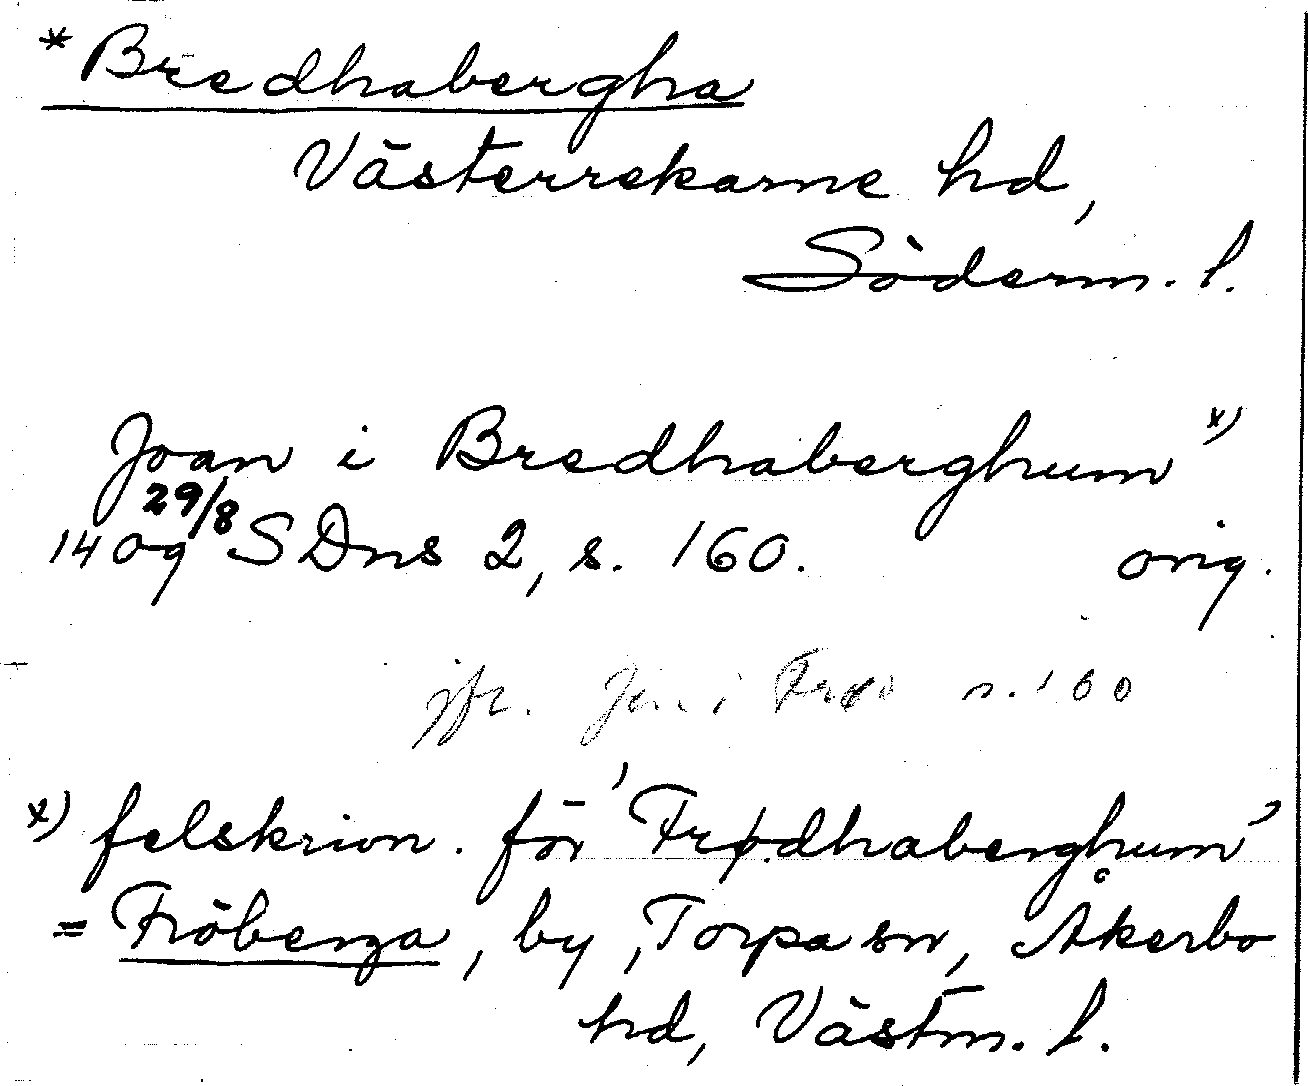 *Bredhabergha
Västerrekarne hd,
Söderm. l.
Joan i Bredhaberghum x)
1409 29/8 SDns 2, s. 160. orig.
jfr. i s. 160
x) felskrivn. för 'Frødhaberghum'
= Fröberga, by, Torpa sn, Åkerbo
hd, Västm. l.